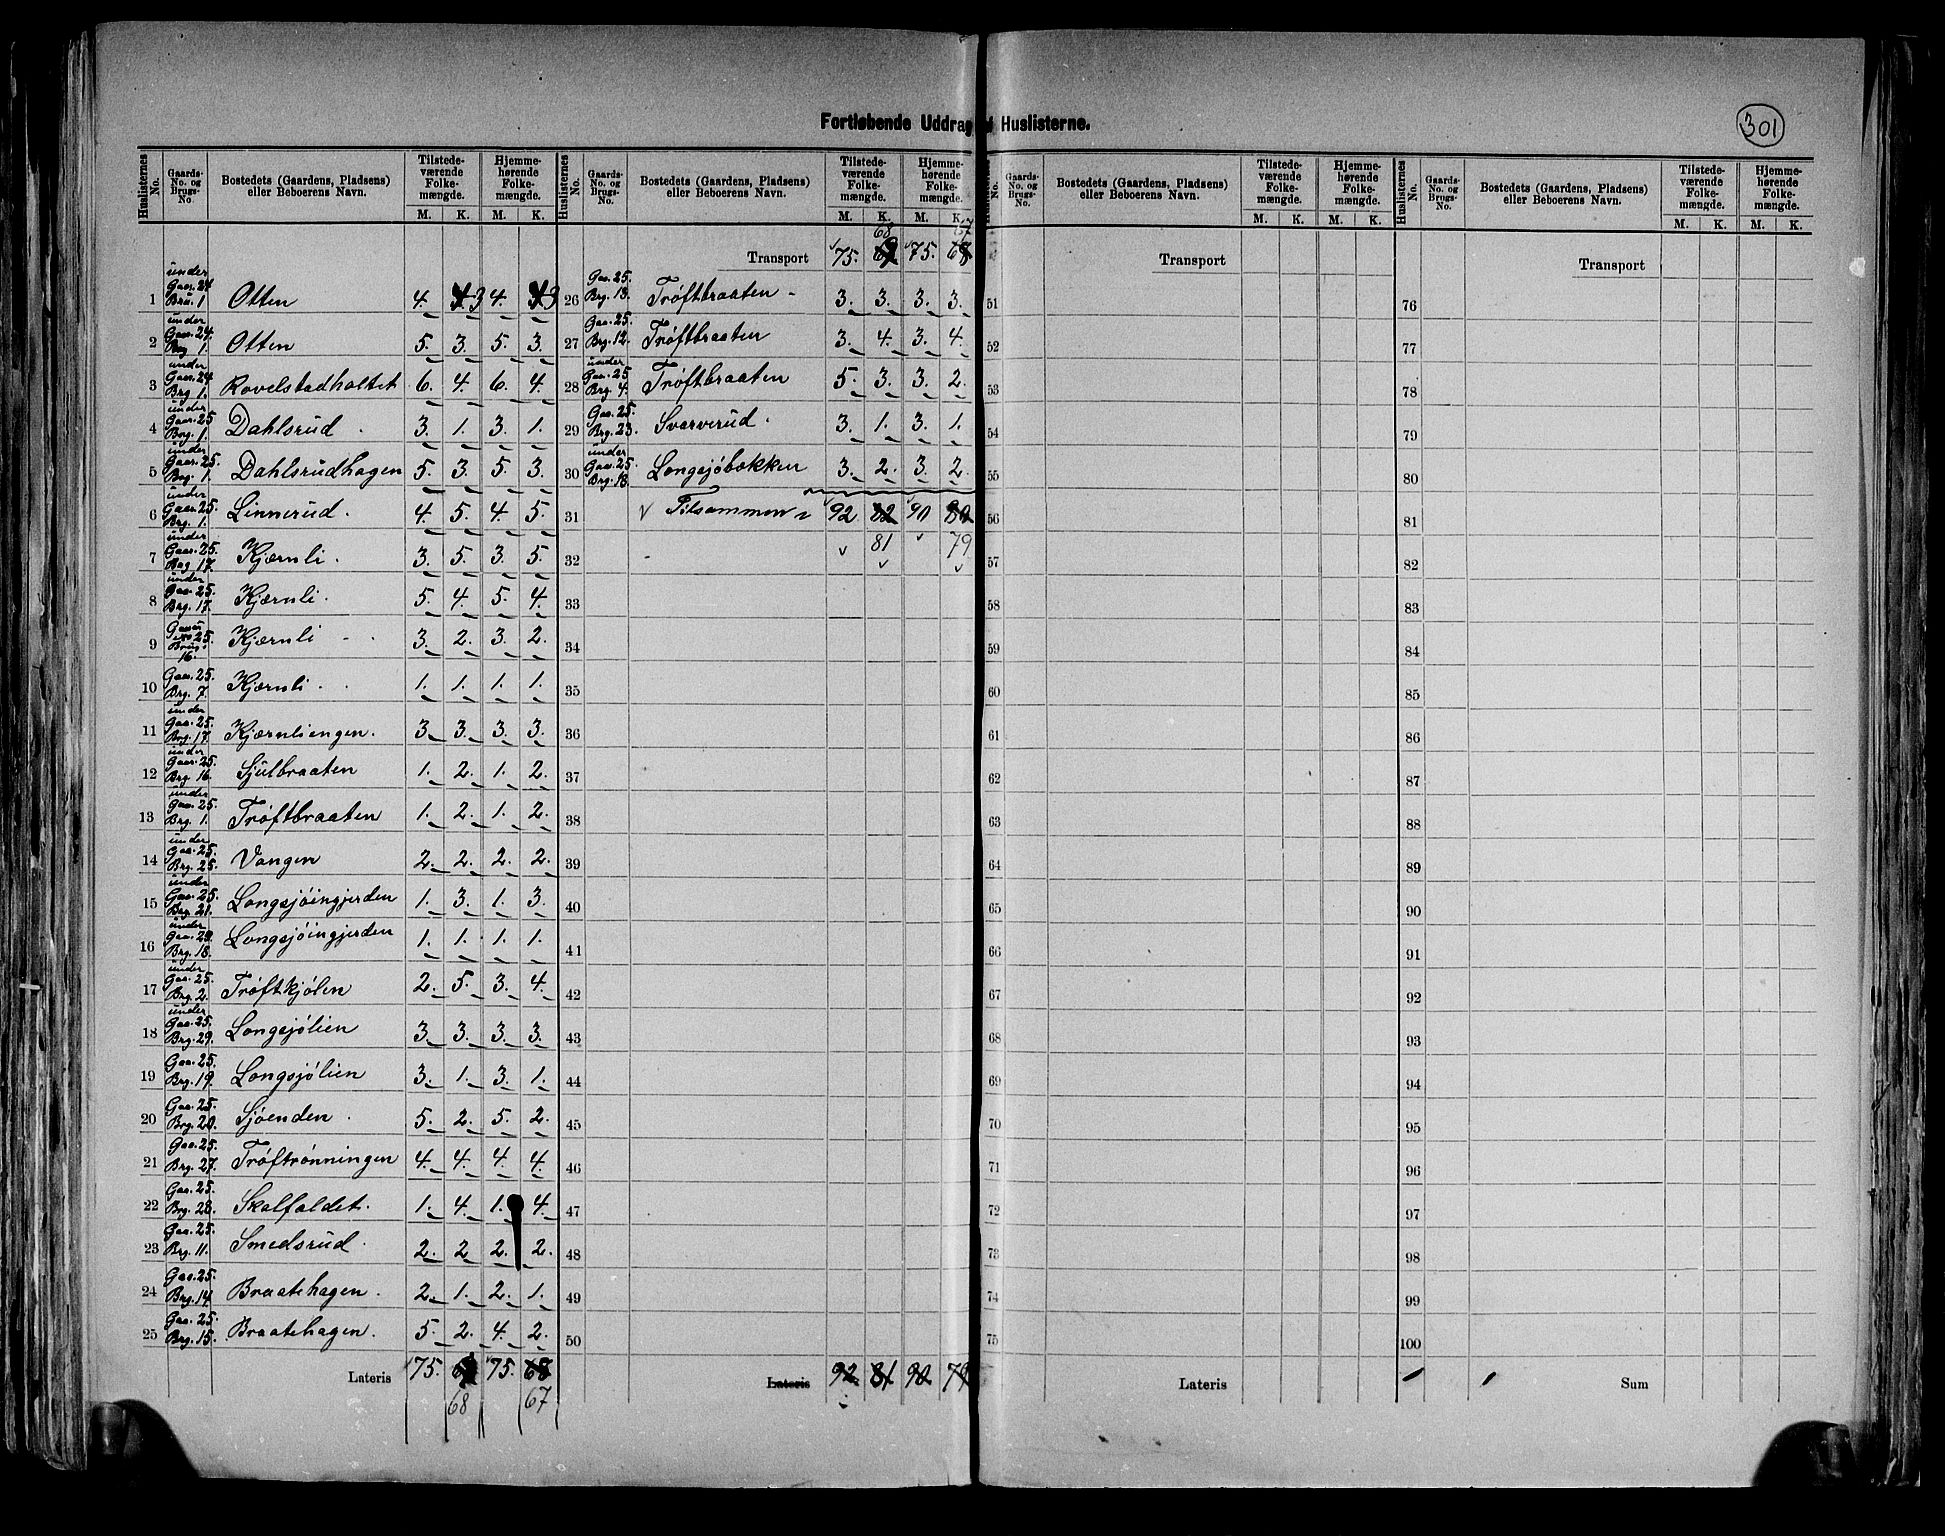 Fortløbende Uddrag af Huslisterne.
301
Huslisternes No. Gaards-No. og Brugs-No. Bostedets (Gaardens, Pladsens) eller Beboerens Navn. Tilstedeværende Folkemængde. M. K. Hjemmehørende Folkemængde. M. K.
1 under Gaar. 24 Bru. 1 Otten 4. 3 4. 3
2 under Gaar. 24. Brg 1. Otten 5. 3. 5. 3.
3 under Gaar. 24 Brg 1. Rovelstadholtet 6. 4. 6. 4.
4 under Gaar. 25 Brg. 1. Dahlsrud 3. 1. 3. 1.
5 under Gaar. 25. Brg. 1. Dahlsrudhagen 5. 3. 5. 3.
6 under Gaar. 25. Brg. 1. Linnerud. 4. 5. 4. 5.
7 under Gaar. 25. Brg. 17. Kjærnli. 3. 5. 3. 5.
8 under Gaa. 25. Brg. 17. Kjærnli. 5. 4. 5. 4.
9 25. Brug. 16. Kjærnli 3. 2. 3. 2.
10 Gaa. 25. Brg. 7. Kjærnli. 1. 1. 1. 1.
11 under Gaa. 25. Brg. 17. Kjærnliengen. 3. 3. 3. 3.
12 under Gaar. 25. Brg. 16. Sjulbraaten 1. 2. 1. 2.
13 under Gaa. 25. Brg. 1. Trøftbraaten 1. 2. 1. 2.
14 under Gaa. 25. Brg. 25. Vangen 2. 2. 2. 2.
15 under Gaa. 25. Brg. 21. Longsjöingjerden 1. 3. 1. 3.
16 under Gaa. 25. Brg. 18. Longsjöingjerden 1. 1. 1. 1.
17 under Gaa. 25. Brg. 2. Trøftkjølen 2. 5. 3. 4.
18 under Gaa. 25. Brg. 29. Longsjølien 3. 3. 3. 3.
19 Gaa. 25. Brg. 19. Longsjølien 3. 1. 3. 1.
20 Gaa. 25. Brg. 20. Sjöenden. 5. 2. 5. 2.
21 Gaa. 25. Brg. 27. Trøftrønningen 4. 4. 4. 4.
22 Gaa. 25. Brg. 28. Skalfaldet. 1. 4. 1. 4.
23 Gaa. 25. Brg. 11. Smedsrud. 2. 2 2. 2.
24 Gaa. 25. Brg. 14. Braatehagen. 2. 1. 2. 1.
25 Gaa. 25. Brg. 15. Braatehagen. 5. 2. 4. 2.
Lateris 75. 75. 68
68 67
Huslisternes No. Gaards-No. og Brugs-No. Bostedets (Gaardens, Pladsens) eller Beboerens Navn. Tilstedeværende Folkemængde. M. K. Hjemmehørende Folkemængde. M. K.
68 67
Transport 75. 69 75. 68
26 Gaa. 25. Brg. 13. Trøftbraaten 3. 3. 3. 3.
27 Gaa. 25. Brg. 12. Trøftbraaten 3. 4. 3. 4.
28 under Gaa. 25 Brg. 4. Trøftbraaten 5. 3. 3. 2.
29 Gaa. 25. Brg. 23. Svarverud. 3. 1. 3. 1.
30 under Gaa. 25. Brg. 18. Longsjöbakken 3. 2. 3. 2.
31 Tilsammen 92 82 90 80
32 81 79
33
34
35
36
37
38
39
40
41
42
43
44
45
46
47
48
49
50
Lateris 92. 81 90 79
Huslisternes No. Gaards-No. og Brugs-No. Bostedets (Gaardens, Pladsens) eller Beboerens Navn. Tilstedeværende Folkemængde. M. K. Hjemmehørende Folkemængde. M. K.
Transport
51
52
53
54
55
56
57
58
59
60
61
62
63
64
65
66
67
68
69
70
71
72
73
74
75
Lateris
Huslisternes No. Gaards-No. og Brugs-No. Bostedets (Gaardens, Pladsens) eller Beboerens Navn. Tilstedeværende Folkemængde. M. K. Hjemmehørende Folkemængde. M. K.
Transport
76
77
78
79
80
81
82
83
84
85
86
87
88
89
90
91
92
93
94
95
96
97
98
99
100
Sum